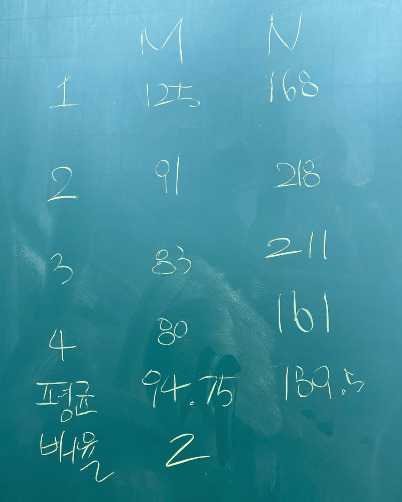 M N
1 125 168
2 91 218
3 83 211
4 80 161
평균 94.75 189.5
배율 2